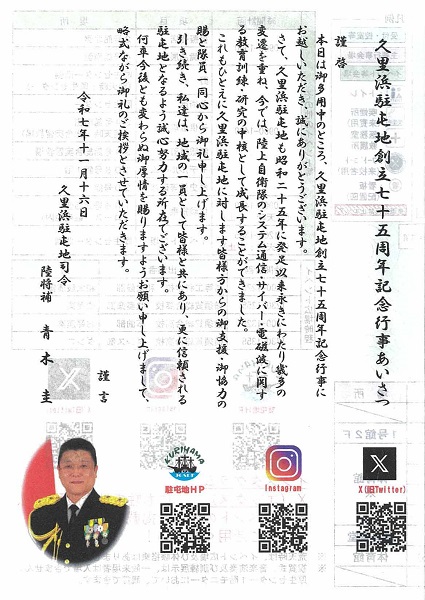 久里浜駐屯地創立七十五周年記念行事あいさつ
謹啓
本日は御多用中のところ、久里浜駐屯地創立七十五周年記念行事に
お越しいただき、誠にありがとうございます。
さて、久里浜駐屯地も昭和二十五年に発足以来永きにわたり幾多の
変遷を重ね、今では、陸上自衛隊のシステム通信・サイバー・電磁波に関す
る教育訓練・研究の中核として成長することができました。
これもひとえに久里浜駐屯地に対します皆様方からの御支援・御協力の
賜と隊員一同心から御礼申し上げます。
引き続き、私達は、地域の一員として皆様と共にあり、更に信頼される
駐屯地となるよう誠心努力する所存でございます。
何卒今後とも変わらぬ御厚情を賜りますようお願い申し上げまして、
略式ながら御礼のご挨拶とさせていただきます。
謹言
令和七年十一月十六日
久里浜駐屯地司令
陸将補 青木 圭
KURIHAMA
駐屯地HP
Instagram
X(旧Twitter)
1号館2F
体育館